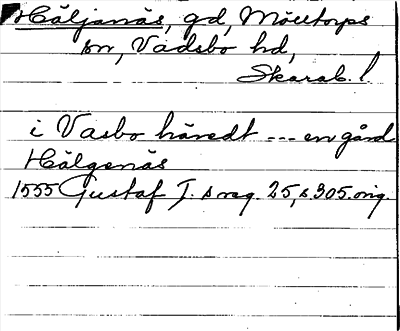 Häljanäs, gd, Mölltorps
sn, Vadsbo hd,
Skarab. l.
i Vasbo häredt --- en gård
Hälgenäs
1555 Gustaf I. s reg. 25, s. 305. orig.